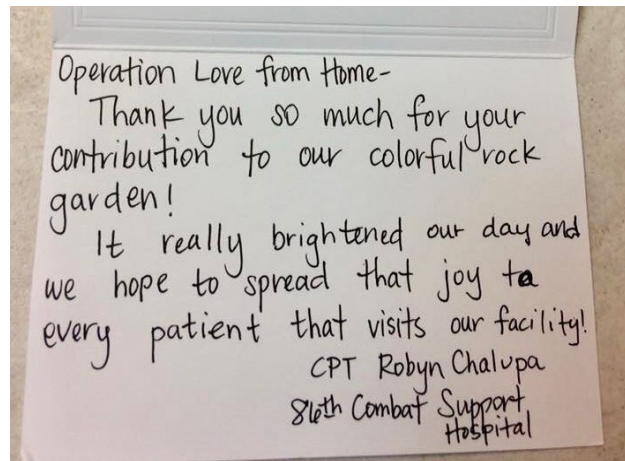 Operation Love from Home-
Thank you so much for your
contribution to our colorful rock
garden!
It really brightened our day and
we hope to spread that joy to
every patient that visits our facility!
CPT Robyn Chalupa
86th Combat Support
Hospital